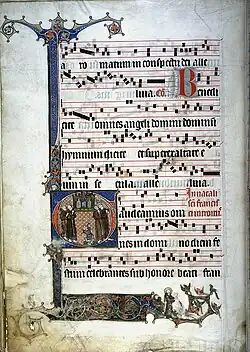 a ro matum in conspectu dei alle
luia. Co. Benedi
cite omnes angeli domini domini
hymnum dicite et superexaltate e
um in se cula alle luia.
In natali
sci francis
Gaudeamus om
nes in domino diem fe
stum celebrantes sub honore beati fran